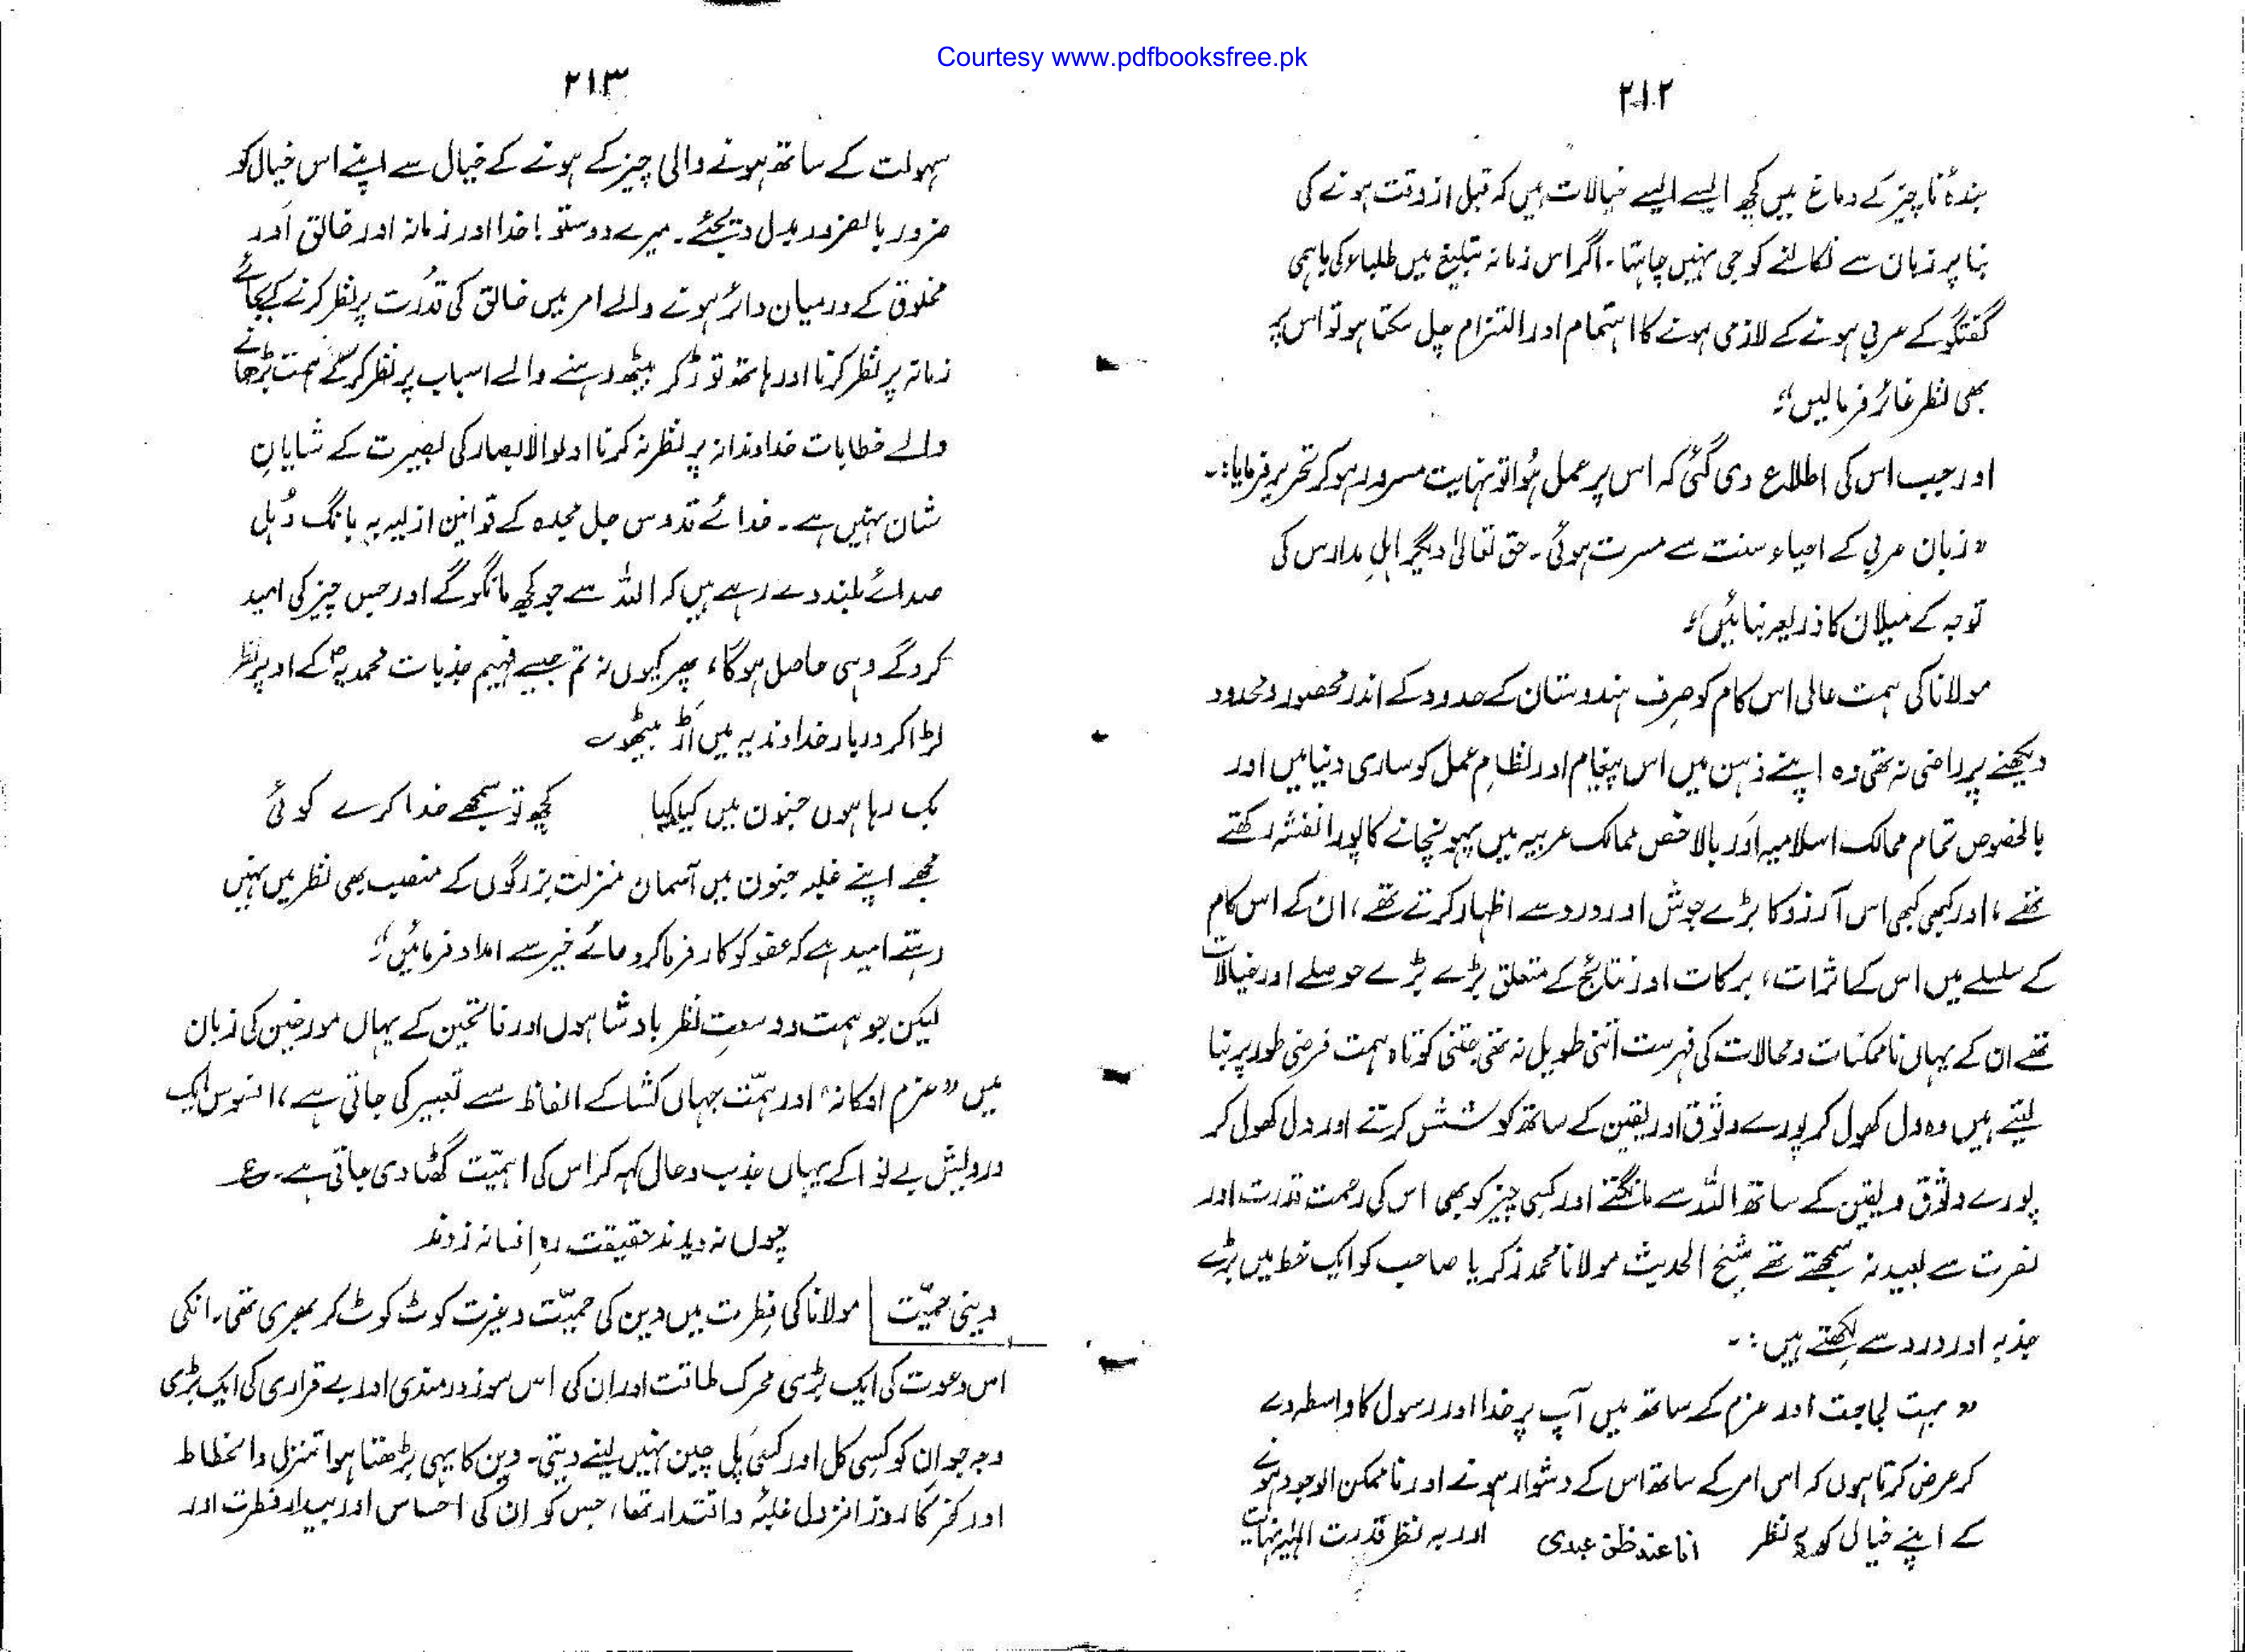 Courtesy www.pdfbooksfree.pk
۲۱۲
بندۂ ناچیز کے دماغ میں کچھ ایسے ایسے خیالات ہیں کہ قبل از وقت ہونے کی
بنا پر زبان سے نکالنے کو جی نہیں چاہتا۔ اگر اس زمانہ تبلیغ میں طلباء کی باہمی
گفتگو کے عربی ہونے کے لازمی ہونے کا اہتمام اور التزام چل سکتا ہو تو اس پر
بھی نظر غائر فرمالیں"
اور جب اس کی اطلاع دی گئی کہ اس پر عمل ہُوا تو نہایت مسرور ہو کر تحریر فرمایا:۔
"زبان عربی کے احیاء سنت سے مسرت ہوئی۔ حق تعالیٰ دیگر اہلِ مدارس کی
توجہ کے میلان کا ذریعہ بنائیں"
مولانا کی ہمت عالی اس کام کو صِرف ہندوستان کے حدود کے اندر محصور و محدود
دیکھنے پر راضی نہ تھی وہ اپنے ذہن میں اس پیغام اور نظامِ عمل کو ساری دنیا میں اور
بالخصوص تمام ممالک اسلامیہ اَور بالاخص ممالک عربیہ میں پہونچانے کا پورا نقشہ رکھتے
تھے، اور کبھی کبھی اس آرزو کا بڑے جوش اور درد سے اظہار کرتے تھے، ان کے اس کام
کے سلسلے میں اس کے اثرات، برکات اور نتائج کے متعلق بڑے بڑے حوصلے اور خیالات
تھے ان کے یہاں ناممکنات و محالات کی فہرست اتنی طویل نہ تھی جتنی کوتاہ ہمت فرضی طور پر بنا
لیتے ہیں وہ دل کھول کر پورے وثوق اور یقین کے ساتھ کوشش کرتے اور دل کھول کر
پورے وثوق و یقین کے ساتھ اللہ سے مانگتے اور کسی چیز کو بھی اس کی رحمت قدرت اور
نصرت سے بعید نہ سمجھتے تھے شیخ الحدیث مولانا محمد زکریا صاحب کو ایک خط میں بڑے
جذبہ اور درد سے لکھتے ہیں:۔
"بہت لجاجت اور عزم کے ساتھ میں آپ پر خدا اور رسول کا واسطہ دے
کر عرض کرتا ہوں کہ اس امر کے ساتھ اس کے دشوار ہونے اور ناممکن الوجود ہونے
کے اپنے خیال کو بہ نظر انا عند ظن عبدی اور بہ نظر قدرت الٰہیہ نہایت
۲۱۳
سہولت کے ساتھ ہونے والی چیز کے ہونے کے خیال سے اپنے اس خیال کو
ضرور بالضرور بدل دیجئے۔ میرے دوستو! خدا اور زمانہ اور خالق اَور
مخلوق کے درمیان دائر ہونے والے امر میں خالق کی قدُرت پر نظر کرنے کے بجائے
زمانہ پر نظر کرنا اور ہاتھ توڑ کر بیٹھ رہنے والے اسباب پر نظر کر کے ہمت بڑھانے
والے خطابات خداوندانہ پر نظر نہ کرنا اولوالابصار کی بصیرت کے شایانِ
شان نہیں ہے۔ خدائے قدوس جل مجدہ کے قوانین ازلیہ بہ بانگ دُہل
صدائے بلند دے رہے ہیں کہ اللہ سے جو کچھ مانگو گے اور جس چیز کی امید
کرو گے وہی حاصل ہوگا، پھر کیوں نہ تم جیسے فہیم جذبات محمدیہؐ کے اوپر نظر
لڑا کر دربار خداوندیہ میں اَڑ بیٹھو؎
بک رہا ہوں جنون میں کیا کیا کچھ تو سمجھے خدا کرے کوئی
مجھے اپنے غلبہ جنون میں آسمان منزلت بزرگوں کے منصب بھی نظر میں نہیں
رہتے امید ہے کہ عفو کو کار فرما کر دعائے خیر سے امداد فرمائیں"
لیکن جو ہمت و وسعتِ نظر بادشاہوں اور فاتحین کے یہاں مورخین کی زبان
میں "عزم ملوکانہ" اور ہمّت جہاں کشا کے الفاظ سے تعبیر کی جاتی ہے، افسوس ایک
درویش بے نوا کے یہاں جذب و حال کہہ کر اس کی اہمیّت گھٹا دی جاتی ہے۔ ع
چوں نہ دیدند حقیقت رہِ افسانہ زدند
دینی حمیّت مولانا کی فِطرت میں دین کی حمیّت و غیرت کوٹ کوٹ کر بھری تھی۔ انکی
اس دعوت کی ایک بڑی محرک طاقت اور ان کی اس سوز و درمندی اور بے قراری کی ایک بڑی
وجہ جو ان کو کسی کل اور کسی پل چین نہیں لینے دیتی۔ دین کا یہی بڑھتا ہوا تنزل و انحطاط
اور کفر کا روز افزوں غلبہ و اقتدار تھا، جس کو ان کی احساس اور بیدار فطرت اور